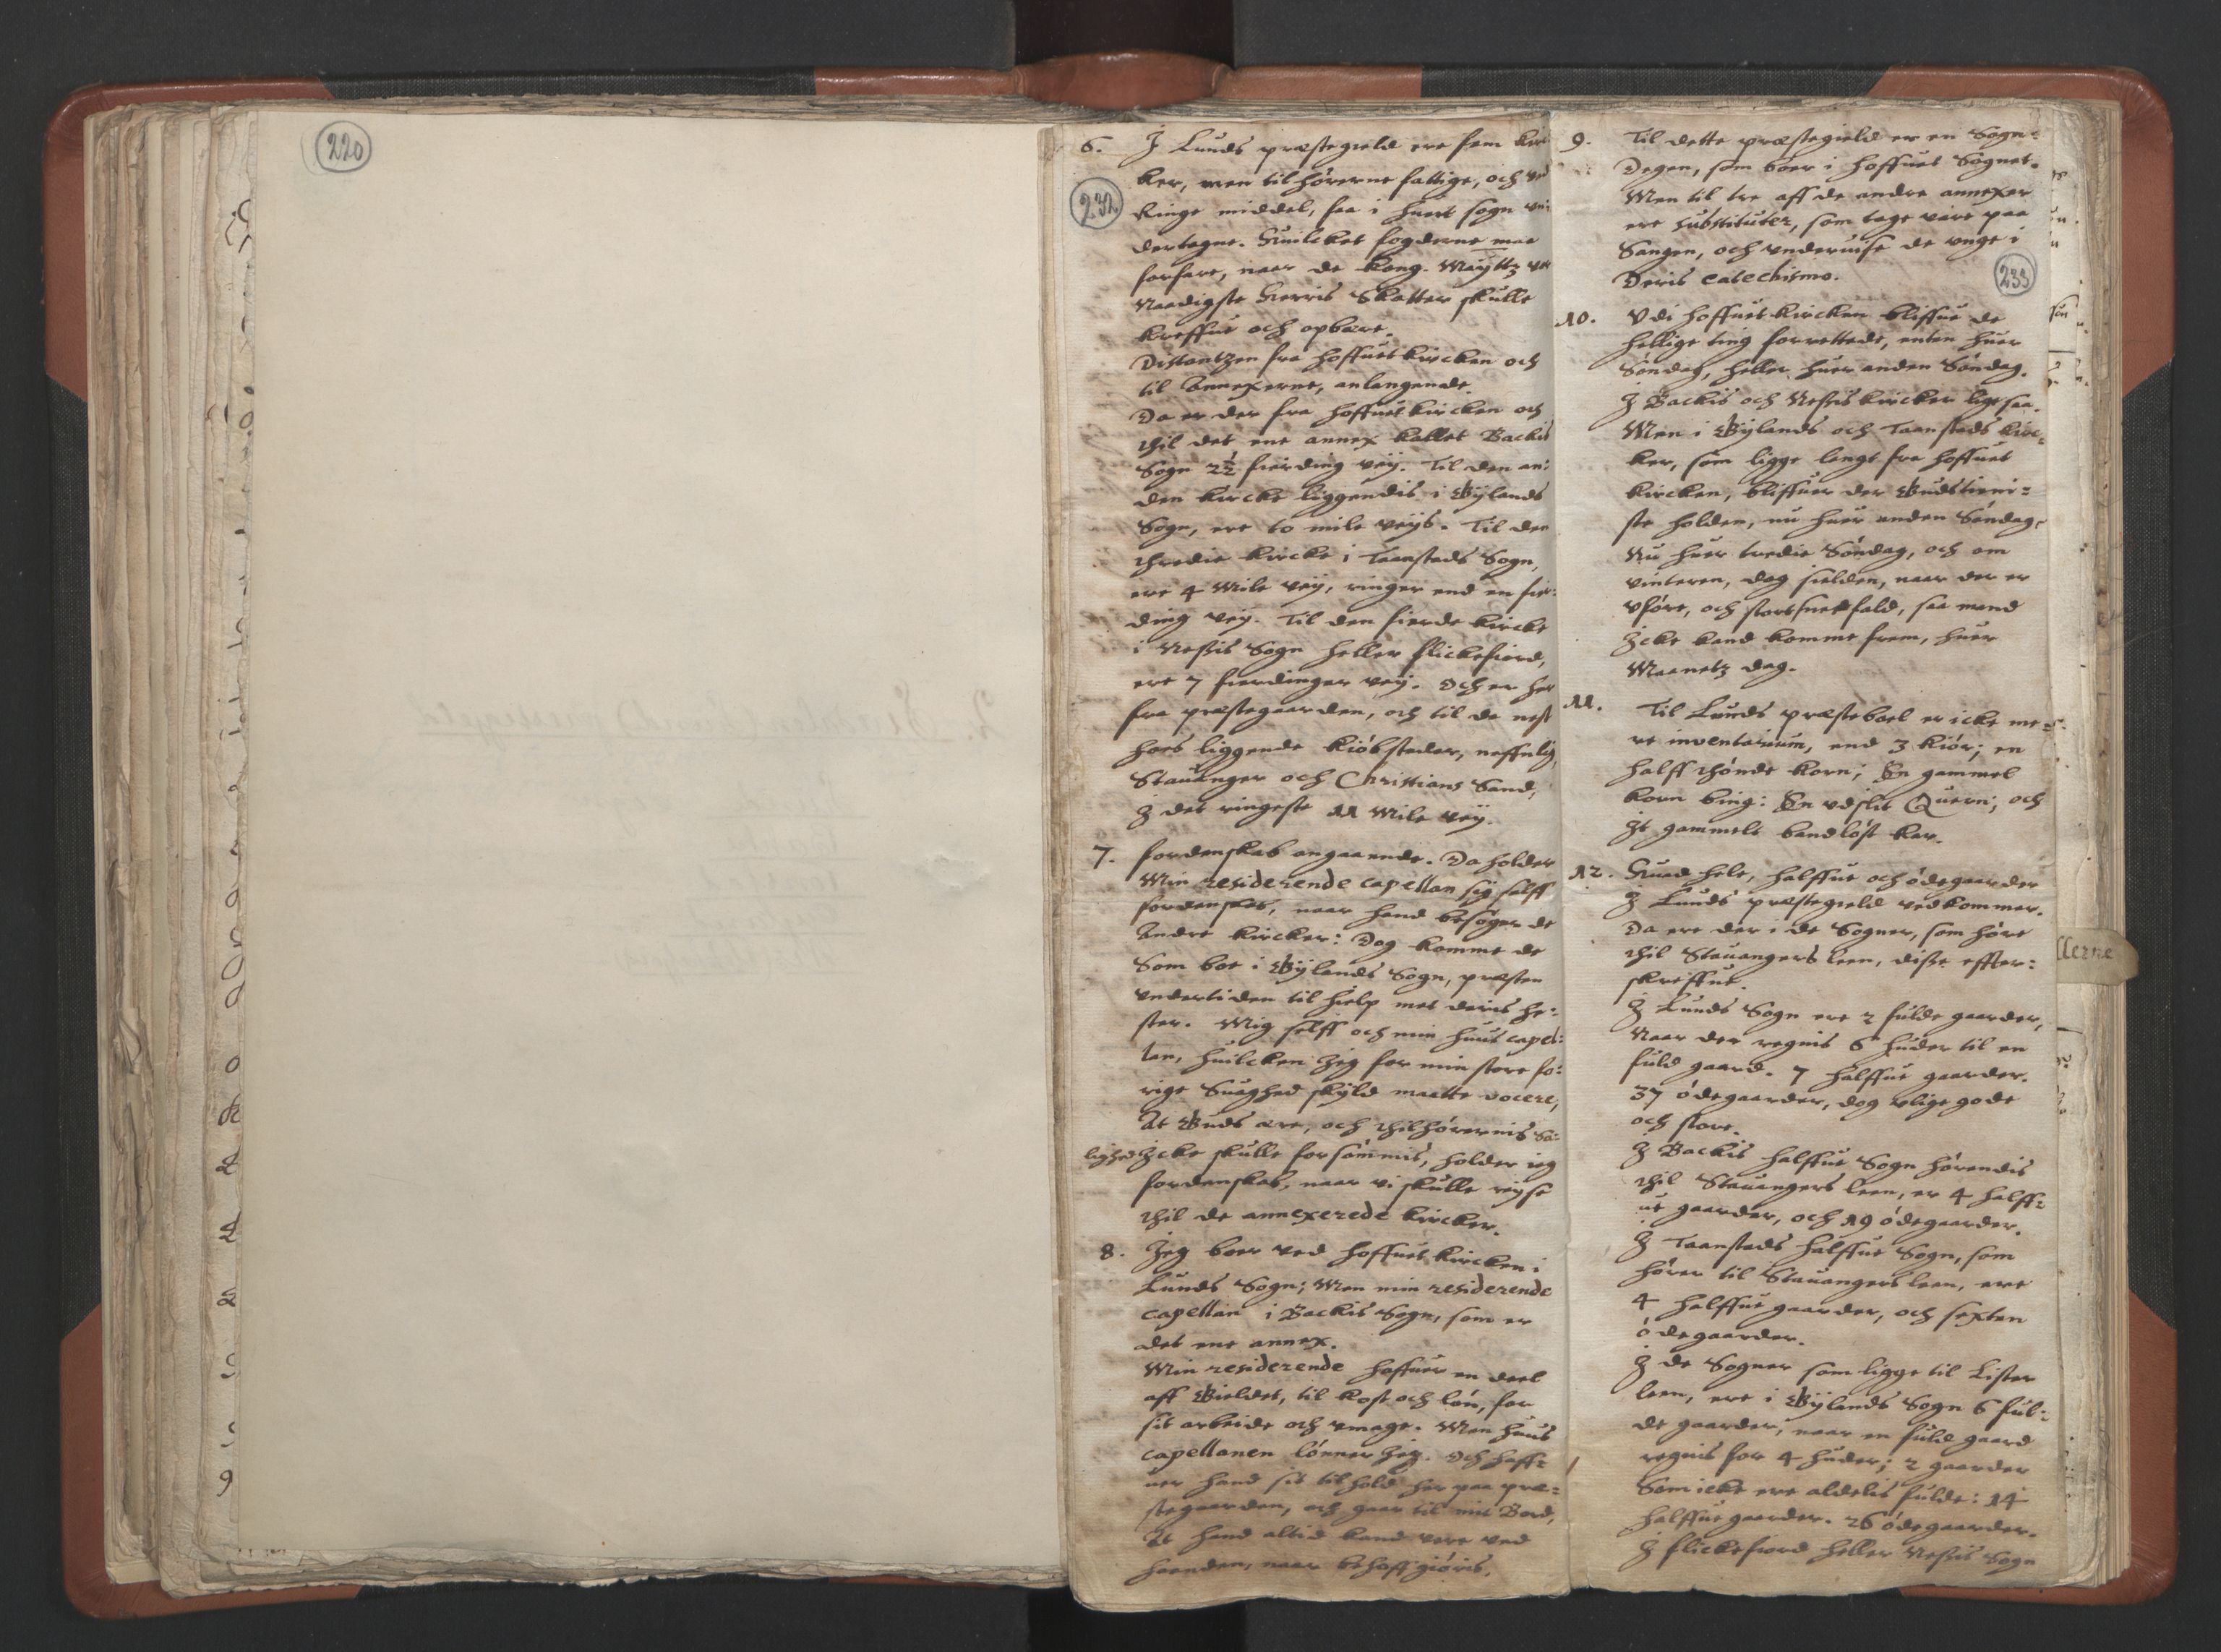 220
6. J Lunds præstegield ere fem kir
ker, men tilhørerne fattige, och ved
Ringe middel, saa i huert sogn vn:
dertagne. Huilcket fogderne maa
forfare, naar de Kong. Maÿttz vor
Naadigste Herris Skatter skulle
kreffue och opbære.
Distantzen fra hoffuet kircken och
til Annexerne, anlangende.
Da er der fra hoffuet kircken och
thil det ene annex kallet Backis
Sogn 2½ fierding veÿ. Til den an:
den kircke liggendis i Bÿlands
Sogn, ere to mile veÿs. Til den
thredie kircke i Taanstads Sogn,
ere 4 Mile veÿ, ringer end en fier:
ding veÿ. Til den fierde kircke
i Neßis Sogn heller flickefiord,
ere 7 fierdinger veÿ. Och er her
fra præstegaarden, och til de nest
hoes liggende kiøbsteder, neffnlig,
Stauanger och Christians Sand,
J det ringeste 11 Mile veÿ.
7. fordenskab angaaende. Da holder
Min residerende capellan sig selff
fordenskab, naar hand besøger de
Andre kircker: Dog komme de
Som boe i Bÿlands Sogn, præsten
vndertiden til hielp met deris he:
ster. Mig selff och min huus capel:
lan, huilcken Jeg for min store fo:
rige Suaghed skÿld maatte vocere,
At Guds ære, och thilhørernis Sa:
lighed Jcke skulle forsømmis, holder ieg
fordenskab, naar vi skulle reÿse
thil de annexerede kircker.
8. Jeg boer ved hoffuet kircken i
Lunds Sogn; Men min residerende
capellan i Backis Sogn, som er
det ene annex.
Min residerende haffuer en deel
aff Gieldet, til kost och løn, for
sit arbeide och vmage. Men huus
capellanen lønner Jeg. Och haff:
uer hand sit tilhold her paa præ:
stegaarden, och gaar til mit Bord,
At hand altid kand vere ved
haanden, naar behoff giøris.
232
9. Til dette præstegield er en Sogne:
Degen, som boer i hoffuet Sognet.
Men til tre aff de andre annexer
ere substituter, som tage vare paa
Sangen, och vnderuise de vnge i
Deris catechismo.
233
10. Vdi hoffuet kircken bliffue de
hellige ting forrettede, enten huer
Søndag, heller huer anden Søndag.
J Backis och Neßis kircker ligesaa.
Men i Bÿlands och Taanstads kirc:
ker, som ligge langt fra hoffuet
kircken, bliffuer der Gudstieni:
ste holden, nu huer anden Søndag,
Nu huer tredie Søndag, och om
vinteren, dog sielden, naar der er
vføre, och stort sneefald, saa mand
Jcke kand komme frem, huer
Maanetz dag.
11. Til Lunds præsteboel er icke me:
re inventarium, end 3 kiør; en
halff thønde korn; En gammel
korn bing: En vdslit Quern; och
Jt gammelt bandløst kar.
12. Huad hele, halffue och ødegaarder
J Lunds præstegield vedkommer.
Da ere der i de Sogner, som høre
thil Stauangers leen, disse effter:
skreffne.
J Lunds Sogn ere 2 fulde gaarder,
Naar der regnis 6 huder til en
fuld gaard. 7 halffue gaarder.
37 ødegaarder, dog vlige gode
och store.
J Backis halffue Sogn hørendis
thil Stauangers leen, er 4 halff:
ue gaarder, och 19 ødegaarder.
J Taanstads halffue Sogn, som
hører til Stauangers leen, ere
4 halffue gaarder, och sexten
ødegaarder.
J de Sogner som ligge til Lister
leen, ere i Bÿlands Sogn 6 ful:
de gaarder, naar en fuld gaard
regnis for 4 huder; 2 gaarder
Som icke ere aldelis fulde: 14
halffue gaarder. 26 ødegaarder.
J flickefiord heller Neßis Sogn
llerne